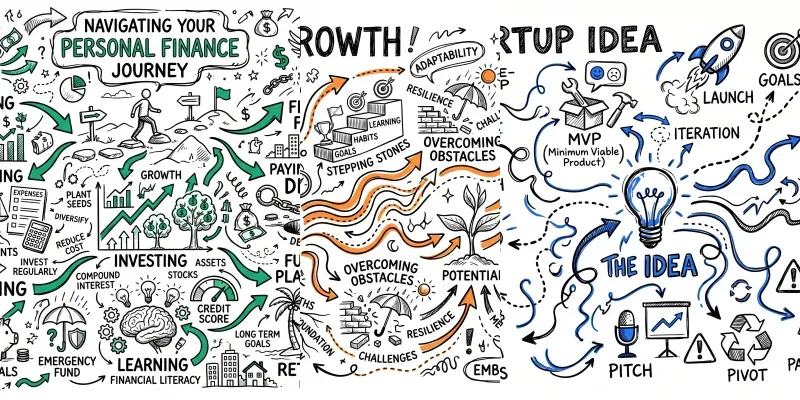 NAVIGATING YOUR
PERSONAL FINANCE
JOURNEY
GROWTH
EXPENSES
PLANT
SEEDS
DIVERSIFY
REDUCE
COST
INVEST
REGULARLY
INVESTING
ASSETS
STOCKS
COMPOUND
INTEREST
CREDIT
SCORE
EMERGENCY
FUND
LEARNING
FINANCIAL LITERACY
LONG TERM
GOALS
ROWTH!
ADAPTABILITY
RESILIENCE
LEARNING
HABITS
GOALS
STEPPING STONES
OVERCOMING
OBSTACLES
OVERCOMING
OBSTACLES
POTENTIAL
RESILIENCE
CHALLENGES
RTUP IDEA
LAUNCH
GOALS
MVP
(Minimum Viable
Product)
ITERATION
THE IDEA
PITCH
PIVOT